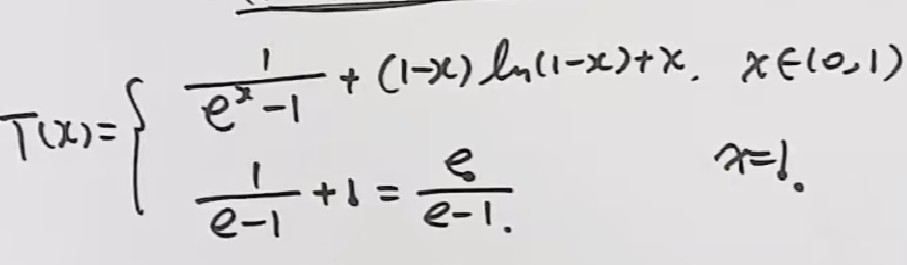 T(x)= { 1/(e^x −1) + (1−x) ln(1−x)+x. x∈(0,1)
1/(e−1) +1 = e/(e−1). x=1.